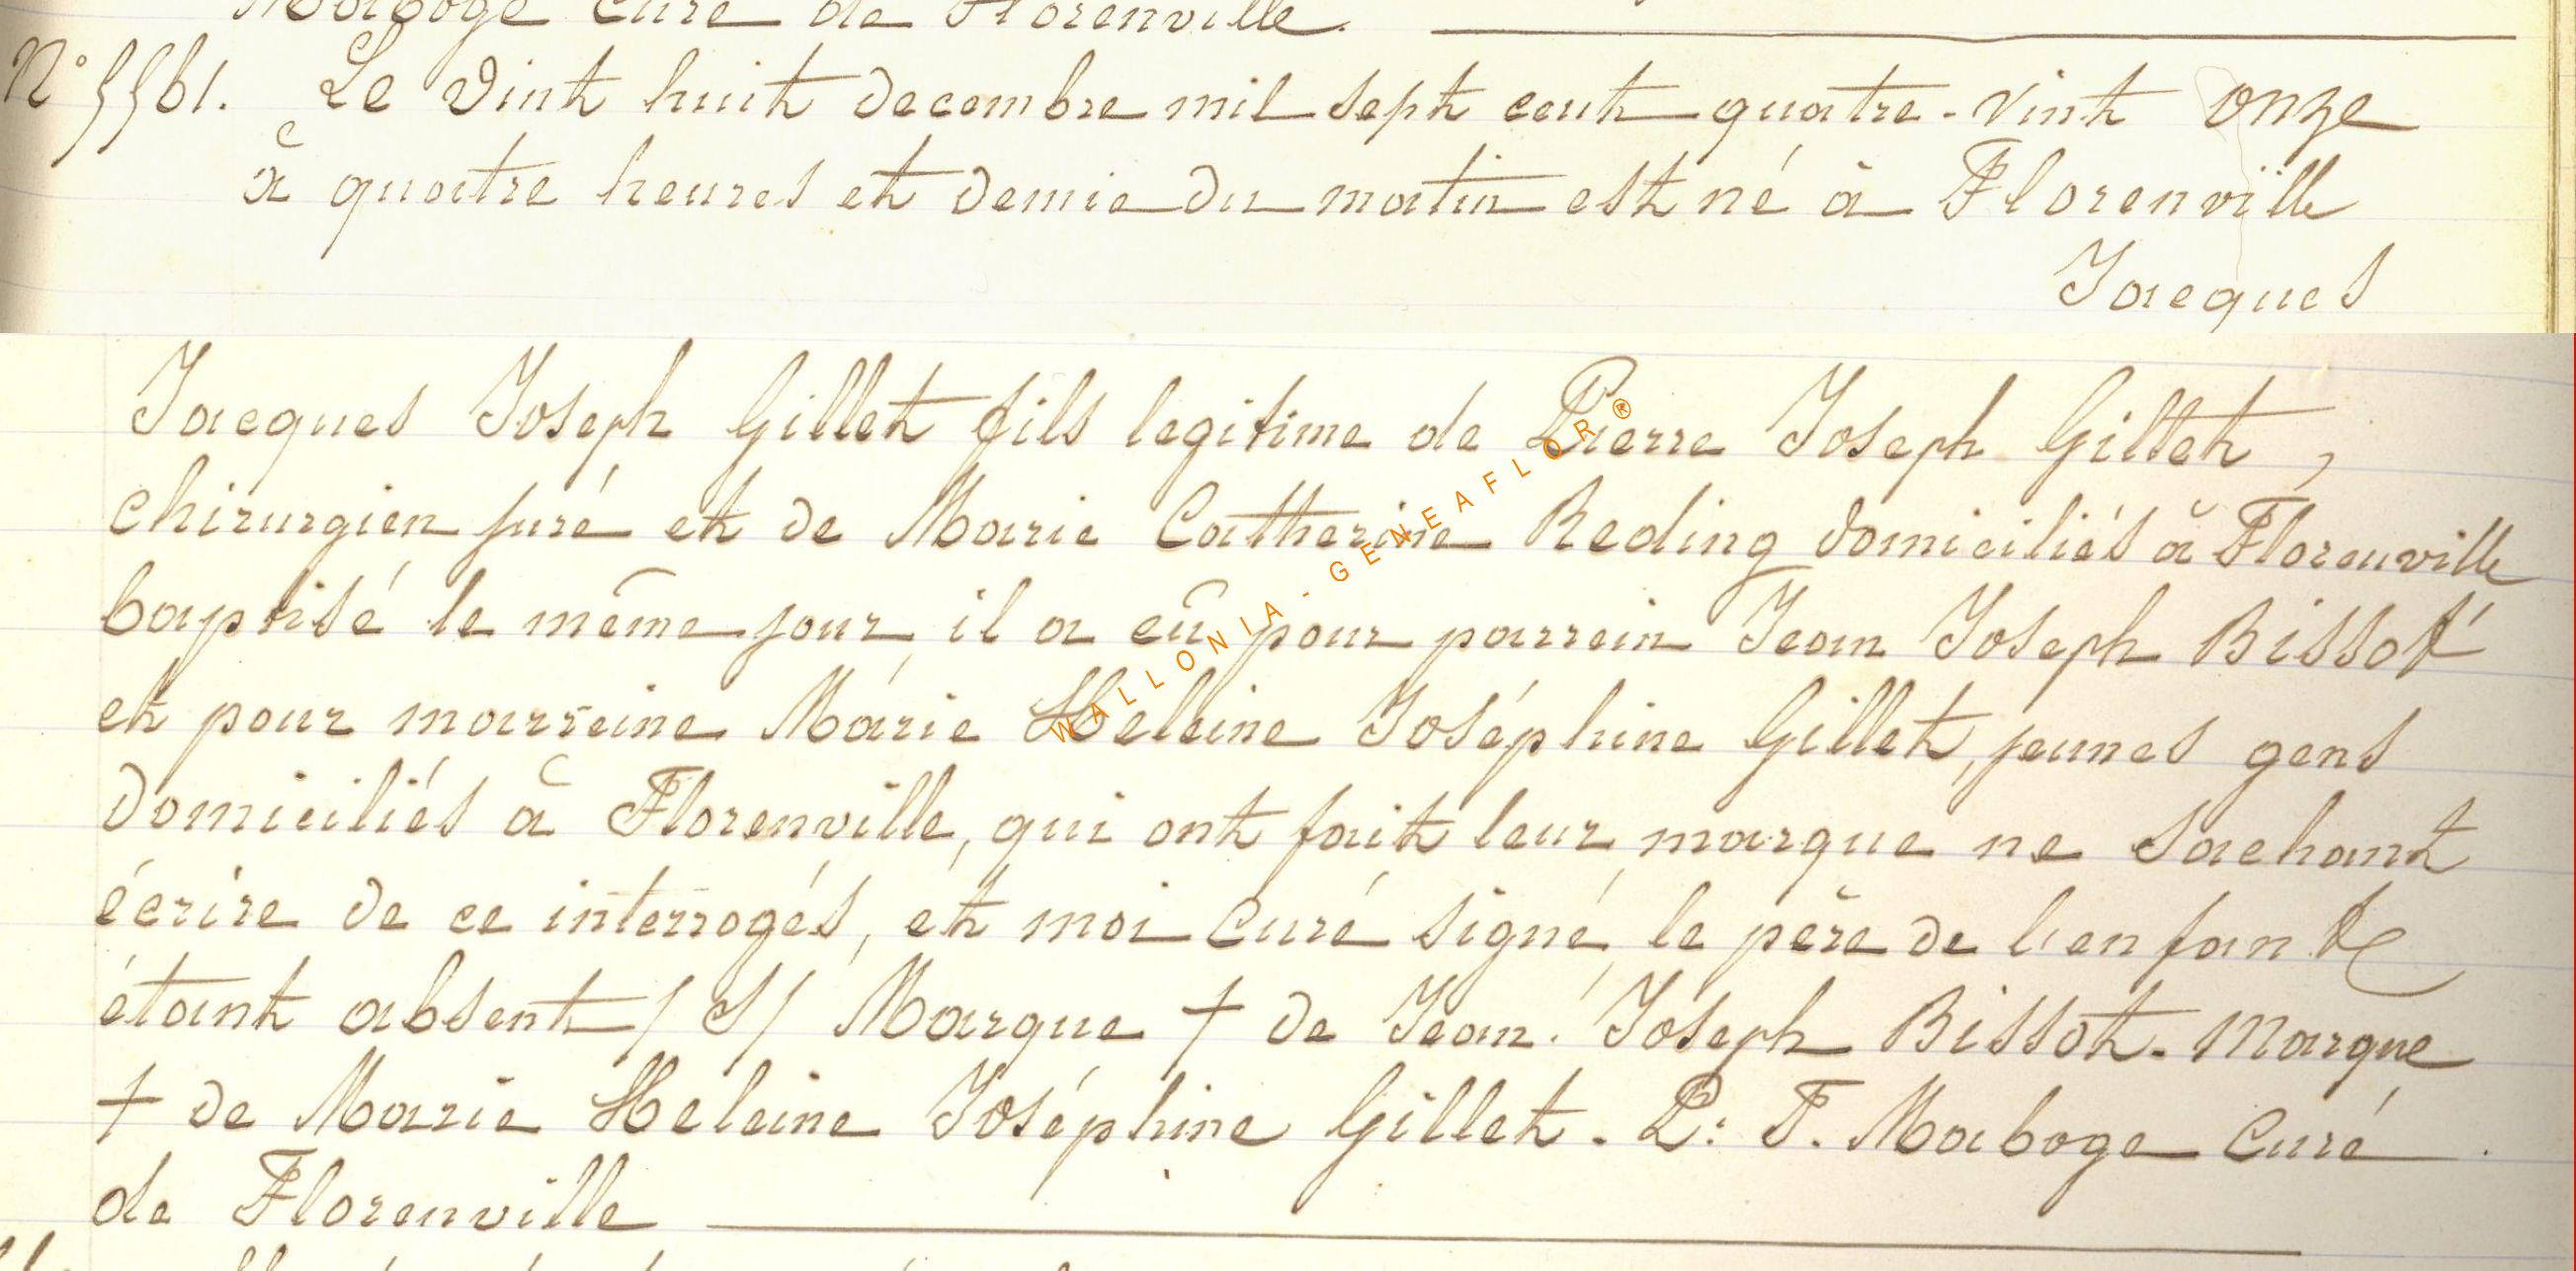 Maboge Curé de Florenville.
N° 5561. Le Vint huit decembre mil sept cent quatre-vint onze
à quatre heures et demie du matin est né à Florenville
Jacques
Jacques Joseph Gillet fils legitime de Pierre Joseph Gillet,
chirurgien juré et de Marie Catherine Reding domiciliés à Florenville
baptisé le même jour, il a eû pour parrein Jean Joseph Bissot
et pour marreine Marie Heleine Joséphine Gillet, jeunes gens
domiciliés à Florenville, qui ont fait leur marque ne sachant
écrire de ce interrogés, et moi Curé signé, le père de l'enfant
étant absent /S/ Marque + de Jean Joseph Bissot. Marque
+ de Marie Heleine Joséphine Gillet. P: F. Maboge Curé.
de Florenville
WALLONIA - GENEAFLOR®